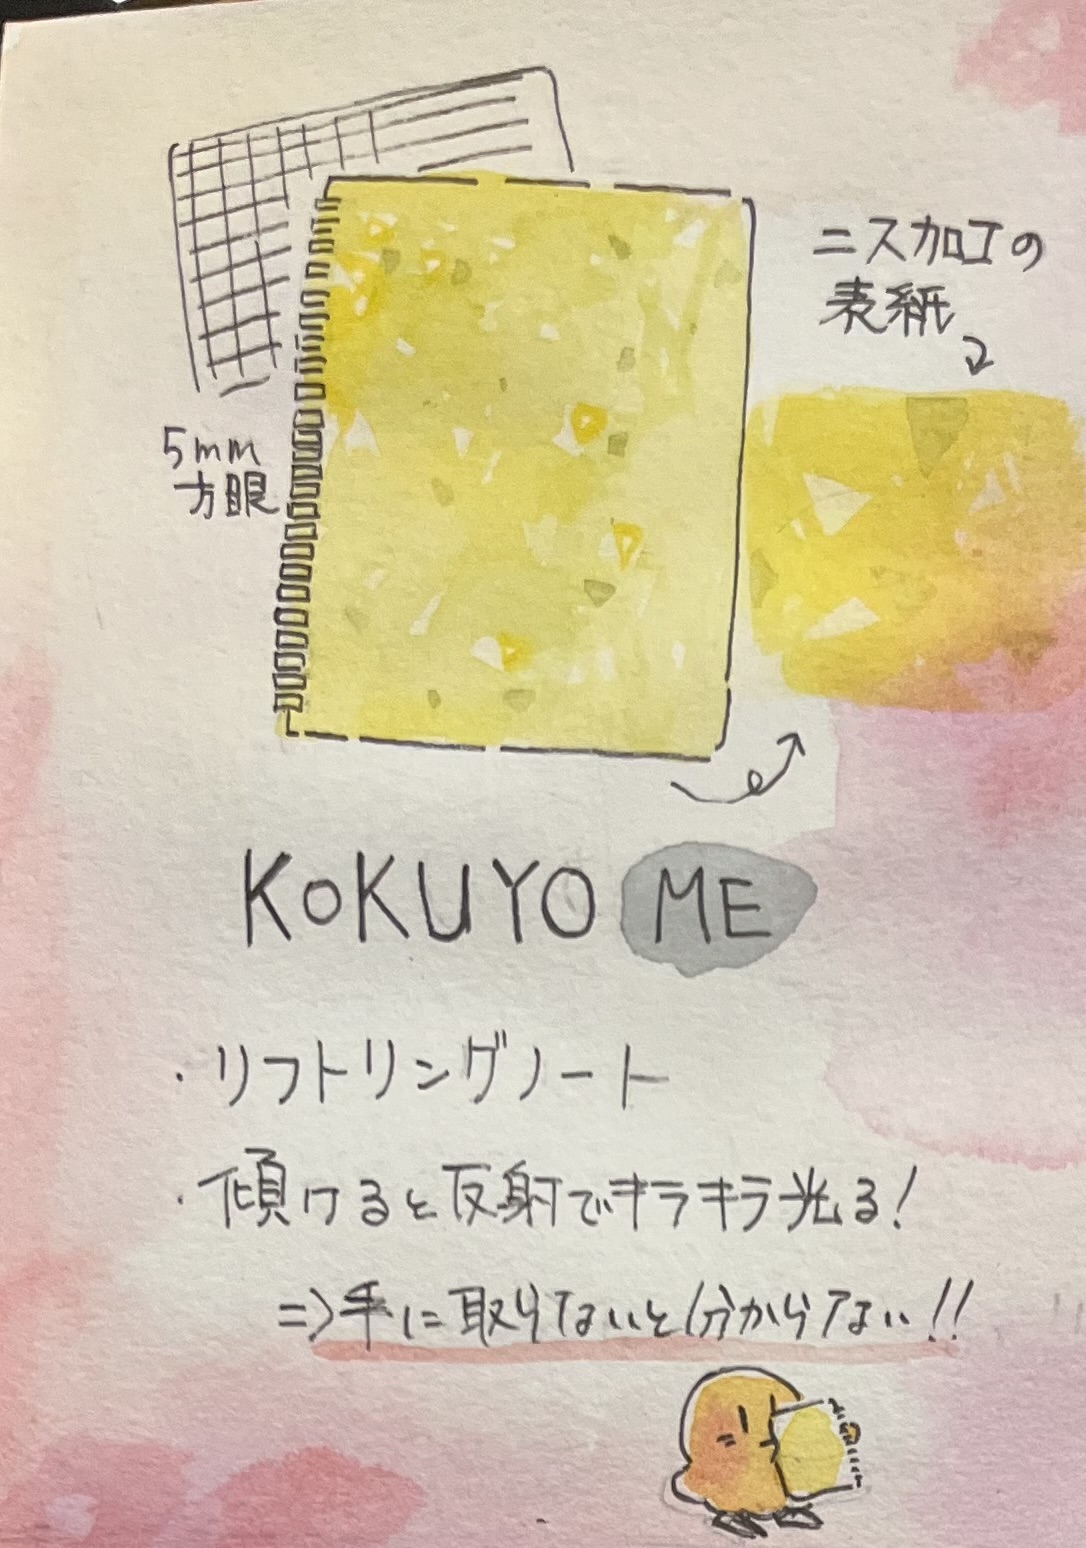 ニス加工の
表紙
5mm
方眼
KOKUYO ME
・リフトリングノート
・傾けると反射でキラキラ光る!
⇒手に取らないと分からない!!